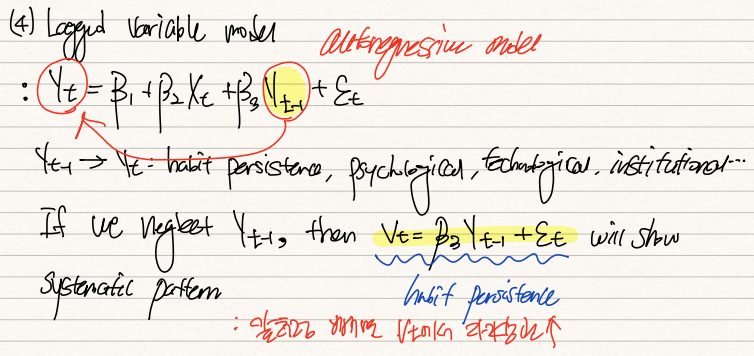 (4) Lagged variable model
autoregressive model
: Yt = β1 + β2 Xt + β3 Yt-1 + εt
Yt-1 → Yt : habit persistence, psychological, technological, institutional...
If we neglect Yt-1, then Vt = β3 Yt-1 + εt will show
systematic pattern
habit persistence
: Vt에서 ↑